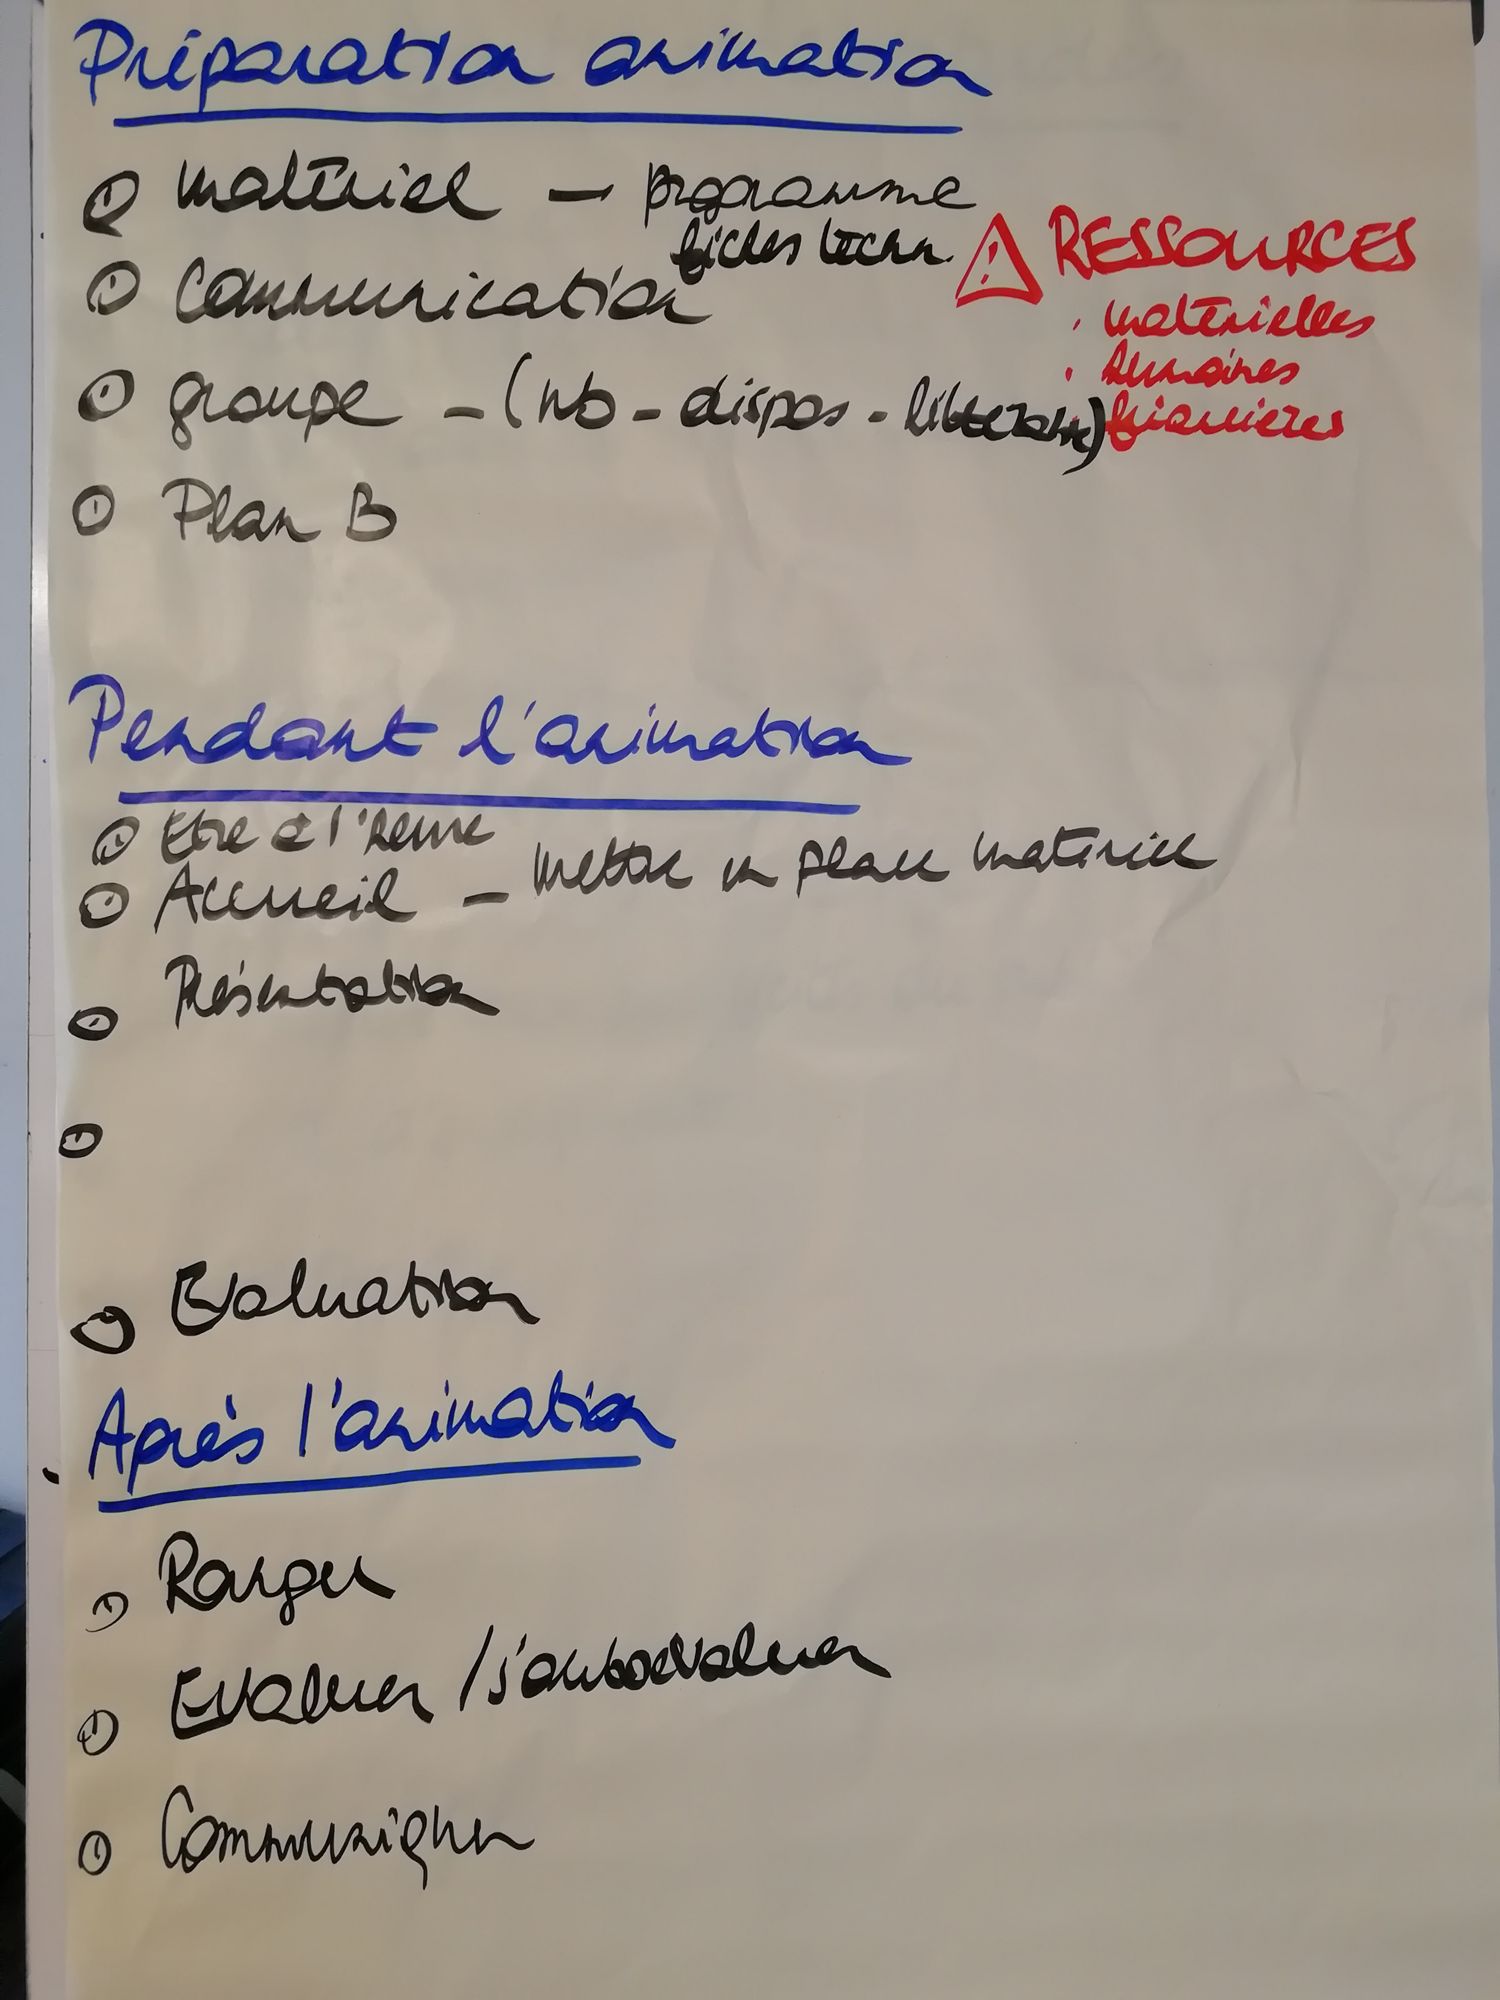 Préparation animation
matériel - programme
fiches techn.
Communication
groupe - (nb - dispos - littératie)
Plan B
RESSOURCES
. matérielles
. humaines
. financières
Pendant l'animation
Etre à l'heure
Accueil - mettre en place matériel
Présentation
Evaluation
Après l'animation
Ranger
Evaluer / s'autoevaluer
Communiquer